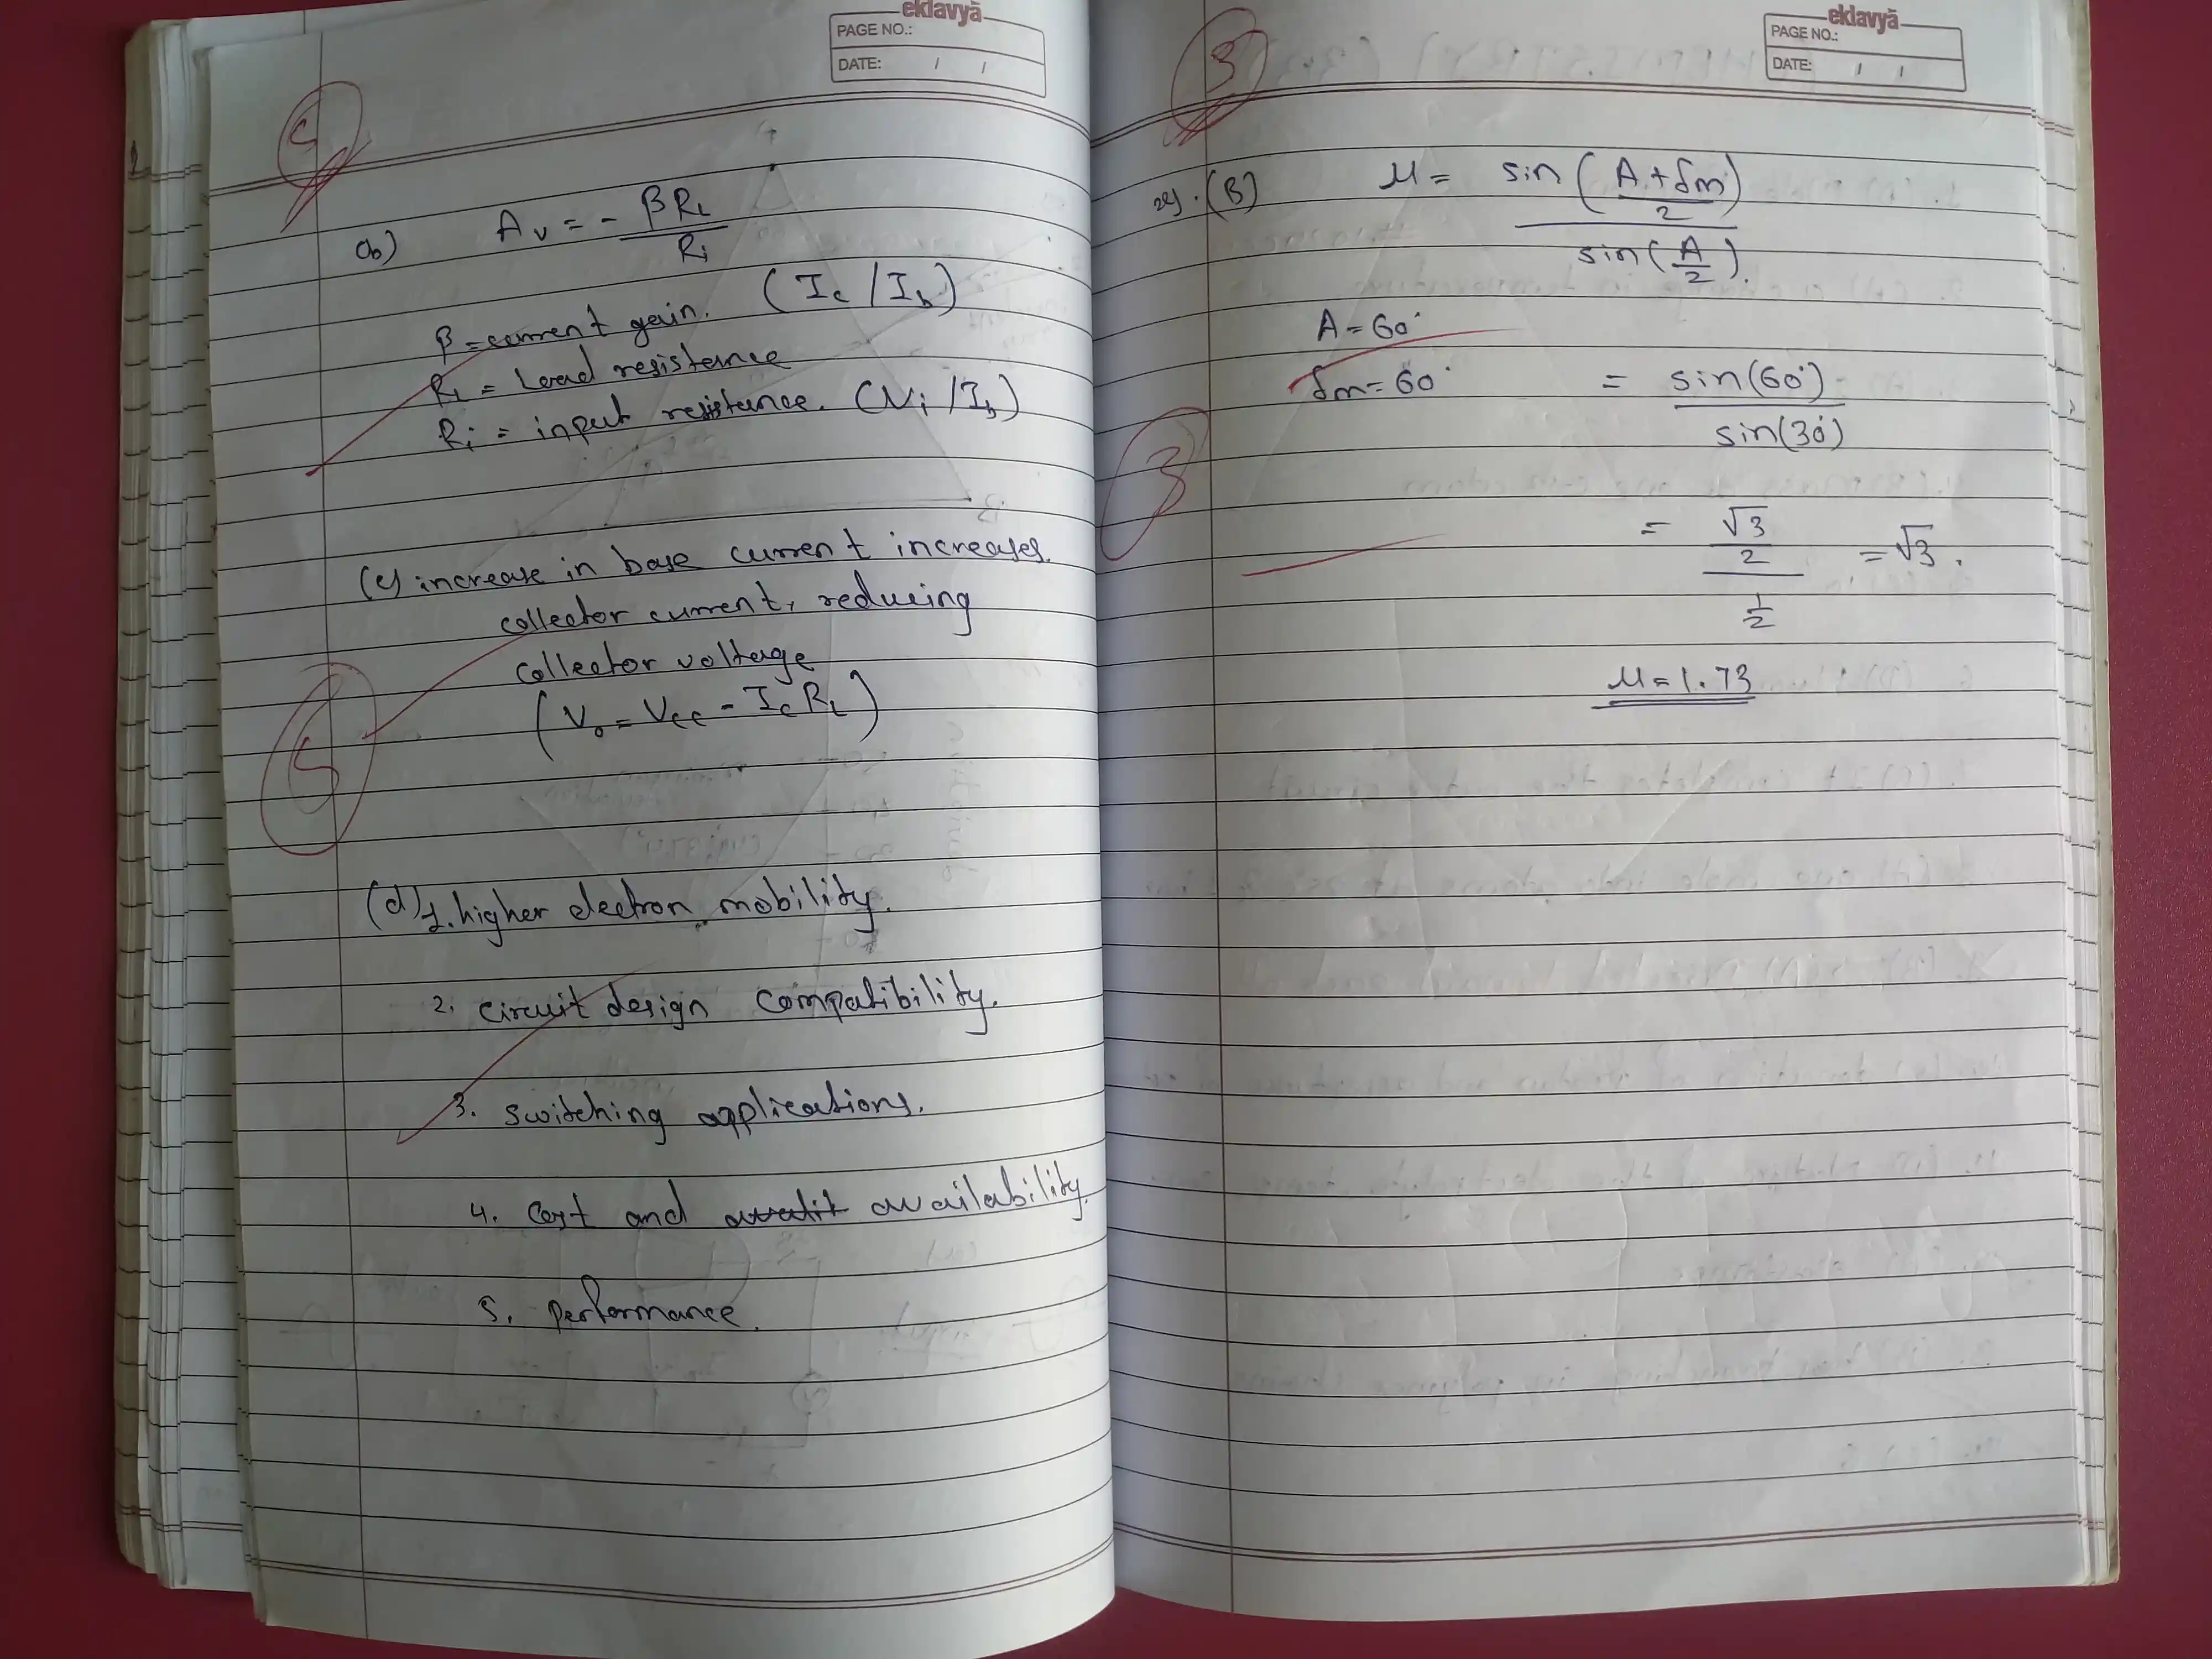 eklavyā
PAGE NO.:
DATE: / /
5
(b) Av = - βRL / Ri
β = current gain. (Ic / Ib)
RL = Load resistance
Ri = input resistance. (Vi / Ib)
(c) increase in base current increases.
collector current, reducing
collector voltage
(Vo = Vcc - IcRL)
5
(d) 1. higher electron mobility.
2. circuit design compatibility.
3. switching applications.
4. Cost and availability.
5. performance.
eklavyā
PAGE NO.:
DATE: / /
3
29. (B) μ = sin(A + δm / 2) / sin(A / 2).
A = 60°
δm = 60° = sin(60°) / sin(30°)
3
= √3/2 / 1/2 = √3.
μ = 1.73